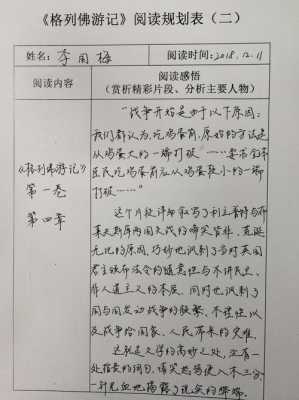 《格列佛游记》阅读规划表（二）
姓名：李闰梅 阅读时间：2018.12.11
阅读内容 阅读感悟
（赏析精彩片段、分析主要人物）
《格列佛游记》
第一卷
第四章
“战争开始是由于以下原因：
我们都认为，吃鸡蛋前，原始的方法是
从鸡蛋大的一端打破……要求全体
臣民吃鸡蛋前从鸡蛋较小的一端
打破……”
这个片段详细叙写了利立普特与布
莱夫斯库两国交战的啼笑皆非、荒诞
无比的原因，巧妙地讽刺了当时英国
君主颁布法令的随意性与不讲民主、
非人道主义的本质，同时也讽刺了
国与国发动战争的频繁、不理性以
及战争给国家、人民带来的灾难。
这就是文学的高妙之处，没有一
处指责的词句，嬉笑怒骂便入木三分，
一针见血地揭露了现实的弊端。